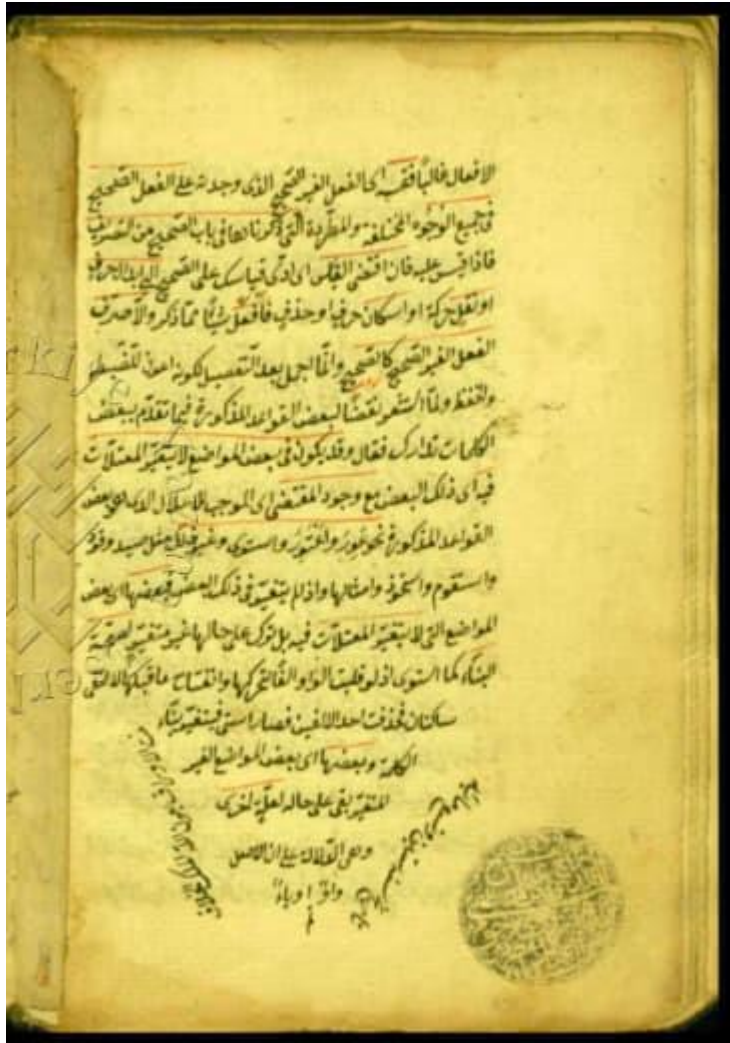 الافعال غالبا فقس اى الفعل الغير الصحيح الذى وجدته على الفعل الصحيح
فى جميع الوجوه المختلفة والمطردة التى ذكرناها فى باب الصحيح من التصريف
فاذا قيس عليه فان اقتضى القياس اى ادى قياسك على الصحيح الى ابدال حرف
او نقل حركة او اسكان حرف او حذف فافعل شيئا مما ذكر والا صرف
الفعل الغير الصحيح كالصحيح وانما اجمل بعد التفصيل لكونه اعون للضبط
والحفظ ولما استشعر نقضا لبعض القواعد المذكورة فيما تقدم ببعض
الكلمات تدارك فقال وقد يكون فى بعض المواضع لا يتغير المعتلات
فيه اى ذلك البعض مع وجود المقتضى اى الموجب للاعلال
القواعد المذكورة نحو عور واعتور واستوى وغير ذلك مثل صيد وقود
واستقوم واستحوذ وامثالها واذ لم يتغير فى ذلك البعض فبعضها اى بعض
المواضع التى لا يتغير المعتلات فيه بل ترك على حالها غير متغير لصحة
البناء كما استوى اذ لو قلبت الواو الفا لتحركها وانفتاح ما قبلها لالتقى
ساكنان فحذفت احد الالفين فصار استى فيتغير بناء
الكلمة وبعضها اى بعض المواضع الغير
المتغير بقى على حاله لعلة اخرى
وهى الدلالة على ان الاصل
واو او ياء